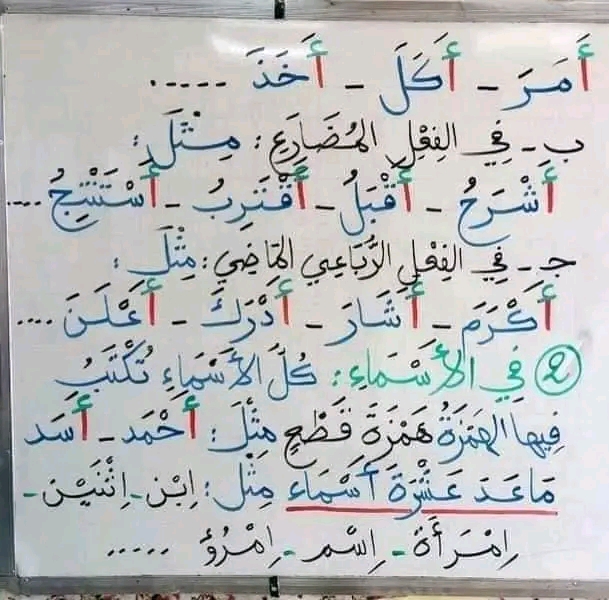 أَمَرَ - أَكَلَ - أَخَذَ .....
ب - فِي الفِعْلِ المُضَارِعِ : مِثْلَ :
أَشْرَحُ - أَقْبَلُ - أَقْتَرِبُ - أَسْتَنْتِجُ ....
جـ - فِي الفِعْلِ الرُّبَاعِي المَاضِي : مِثْلَ :
أَكْرَمَ - أَشَارَ - أَدْرَكَ - أَعْلَنَ ....
② فِي الأَسْمَاءِ : كُلُّ الأَسْمَاءِ تُكْتَبُ
فِيهَا الهَمْزَةُ هَمْزَةَ قَطْعٍ مِثْلَ : أَحْمَد - أَسَد
مَاعَدَ عَشْرَةَ أَسْمَاء مِثْل : اِبْن - اِثْنَيْن -
اِمْرَأَة - اِسْم - اِمْرُؤ .....